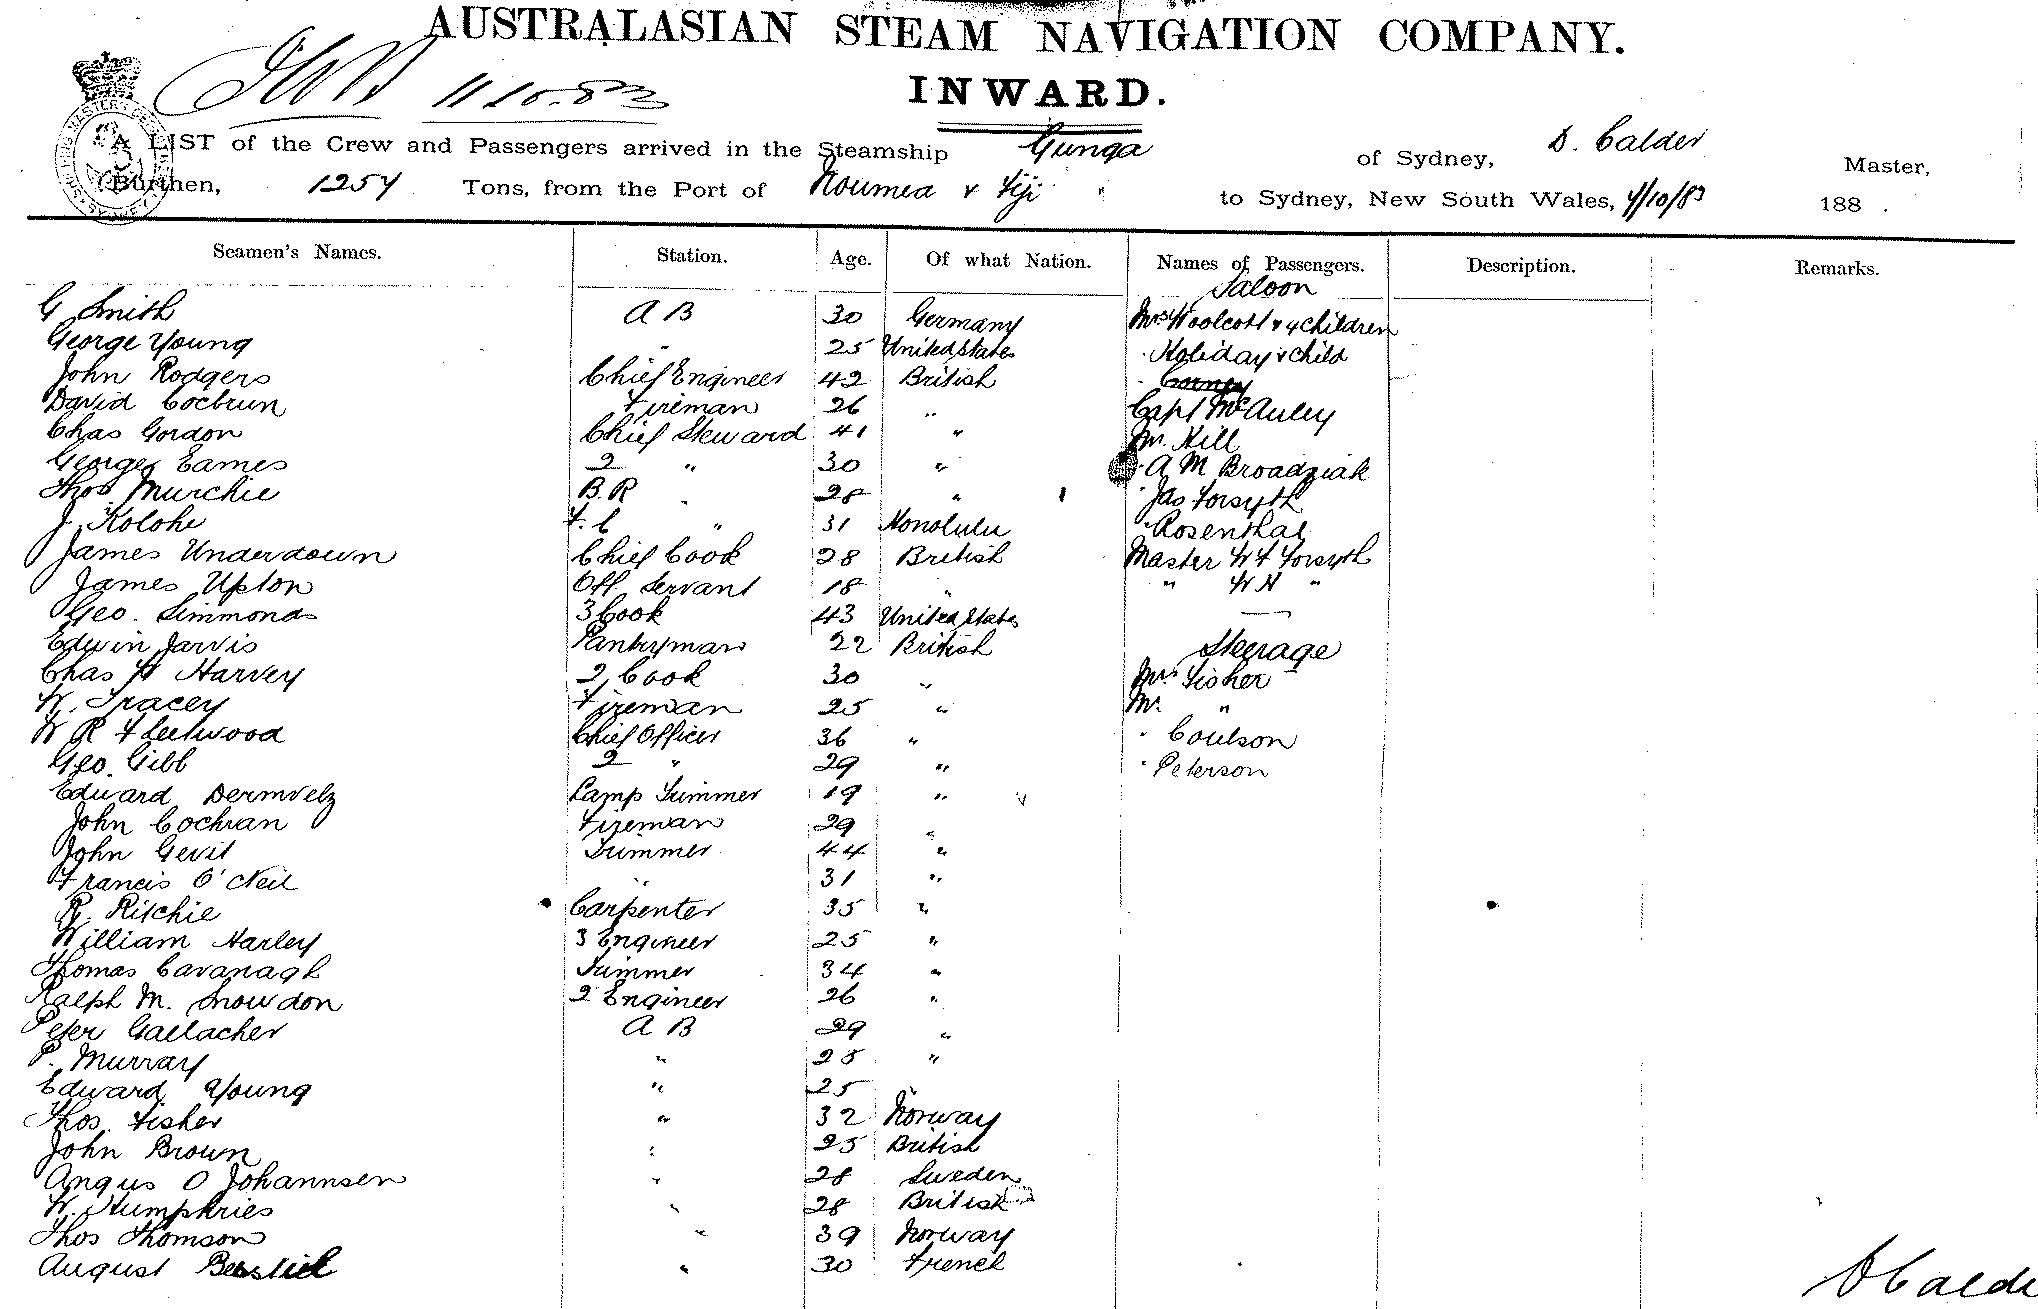 AUSTRALASIAN STEAM NAVIGATION COMPANY.
11.10.83
INWARD.
A LIST of the Crew and Passengers arrived in the Steamship Gunga of Sydney, D. Calder Master,
Burthen, 1257 Tons, from the Port of Noumea & Fiji to Sydney, New South Wales, 9/10/83 188 .
Seamen's Names. Station. Age. Of what Nation. Names of Passengers. Description. Remarks.
Saloon
G Smith A B 30 Germany Mrs Woolcott & 4 children
George Young " 25 United States " Holiday & child
John Rodgers Chief Engineer 42 British "
David Cocbrun Fireman 26 " Capt McAuley
Chas Gordon Chief Steward 41 " Mr. Hill
George Eames 2 " 30 " " A M Broadziak
Thos Murchie B.R " 28 " " Jas Forsyth
J. Kolohe F.C " 31 Honolulu " Rosenthal
James Underdown Chief Cook 28 British Master W F Forsyth
James Upton Off. Servant 18 " " W H "
Geo. Simmonds 3 Cook 43 United States
Edwin Jarvis Pantryman 22 British Steerage
Chas H Harvey 2 Cook 30 " Mrs Fisher
W. Tracey Fireman 25 " Mr. "
W R Fleetwood Chief Officer 36 " " Coulson
Geo. Gibb 2 " 29 " " Peterson
Edward Lamp Trimmer 19 "
John Cochran Fireman 29 "
John Gevit Trimmer 44 "
Francis O'Neil " 31 "
R. Ritchie Carpenter 35 "
William Harley 3 Engineer 25 "
Thomas Cavanagh Trimmer 34 "
Ralph M. Snowdon 2 Engineer 26 "
Peter Gallacher A B 29 "
P. Murray " 25 "
Edward Young " 25 "
Thos. Fisher " 32 Norway
John Brown " 25 British
Angus O Johannsen " 28 Sweden
W. Humphries " 28 British
Thos Thomson " 39 Norway
August " 30 French
D Calde